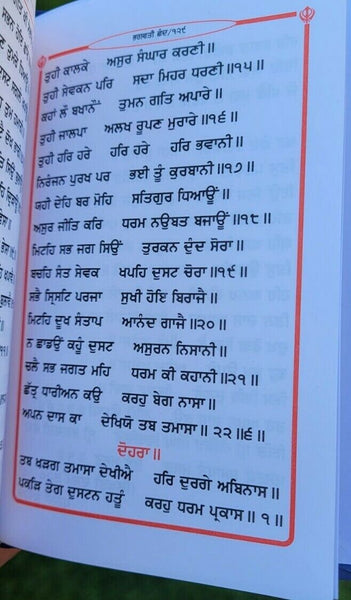 ਭਗਵਤੀ ਛੰਦ/੧੨੯
ਤੁਹੀ ਕਾਲਕੇ ਅਸੁਰ ਸੰਘਾਰ ਕਰਣੀ॥
ਤੁਹੀ ਸੇਵਕਨ ਪਰਿ ਸਦਾ ਮਿਹਰ ਧਰਣੀ॥੧੫॥
ਕਹਾਂ ਲੌ ਬਖਾਨੌਂ ਤੁਮਨ ਗਤਿ ਅਪਾਰੇ॥
ਤੁਹੀ ਜਾਲਪਾ ਅਲਖ ਰੂਪਣ ਮੁਰਾਰੇ॥੧੬॥
ਤੁਹੀ ਹਰਿ ਹਰੇ ਹਰਿ ਹਰੇ ਹਰਿ ਭਵਾਨੀ॥
ਨਿਰੰਜਨ ਪੁਰਖ ਪਰ ਭਈ ਤੂੰ ਕੁਰਬਾਨੀ॥੧੭॥
ਯਹੀ ਦੇਹਿ ਬਰ ਮੋਹਿ ਸਤਿਗੁਰ ਧਿਆਊਂ॥
ਅਸੁਰ ਜੀਤਿ ਕਰਿ ਧਰਮ ਨਉਬਤ ਬਜਾਊਂ॥੧੮॥
ਮਿਟਹਿ ਸਭ ਜਗ ਸਿਉਂ ਤੁਰਕਨ ਦੁੰਦ ਸੋਰਾ॥
ਬਚਹਿ ਸੰਤ ਸੇਵਕ ਖਪਹਿ ਦੁਸਟ ਚੋਰਾ॥੧੯॥
ਸਭੈ ਸ੍ਰਿਸਟਿ ਪਰਜਾ ਸੁਖੀ ਹੋਇ ਬਿਰਾਜੈ॥
ਮਿਟਹਿ ਦੂਖ ਸੰਤਾਪ ਆਨੰਦ ਗਾਜੈ॥੨੦॥
ਨ ਛਾਡਉਂ ਕਹੂੰ ਦੁਸਟ ਅਸੁਰਨ ਨਿਸਾਨੀ॥
ਚਲੈ ਸਭ ਜਗਤ ਮਹਿ ਧਰਮ ਕੀ ਕਹਾਨੀ॥੨੧॥
ਛੱਤ੍ਰ ਧਾਰੀਅਨ ਕਉ ਕਰਹੁ ਬੇਗ ਨਾਸਾ॥
ਅਪਨ ਦਾਸ ਕਾ ਦੇਖਿਯੋ ਤਬ ਤਮਾਸਾ॥੨੨॥੬॥
ਦੋਹਰਾ॥
ਤਬ ਖੜਗ ਤਮਾਸਾ ਦੇਖੀਐ ਹਰਿ ਦੁਰਗੇ ਅਬਿਨਾਸ॥
ਪਕੜਿ ਤੇਗ ਦੁਸਟਨ ਹਤੂੰ ਕਰਹੁ ਧਰਮ ਪ੍ਰਕਾਸ॥੧॥